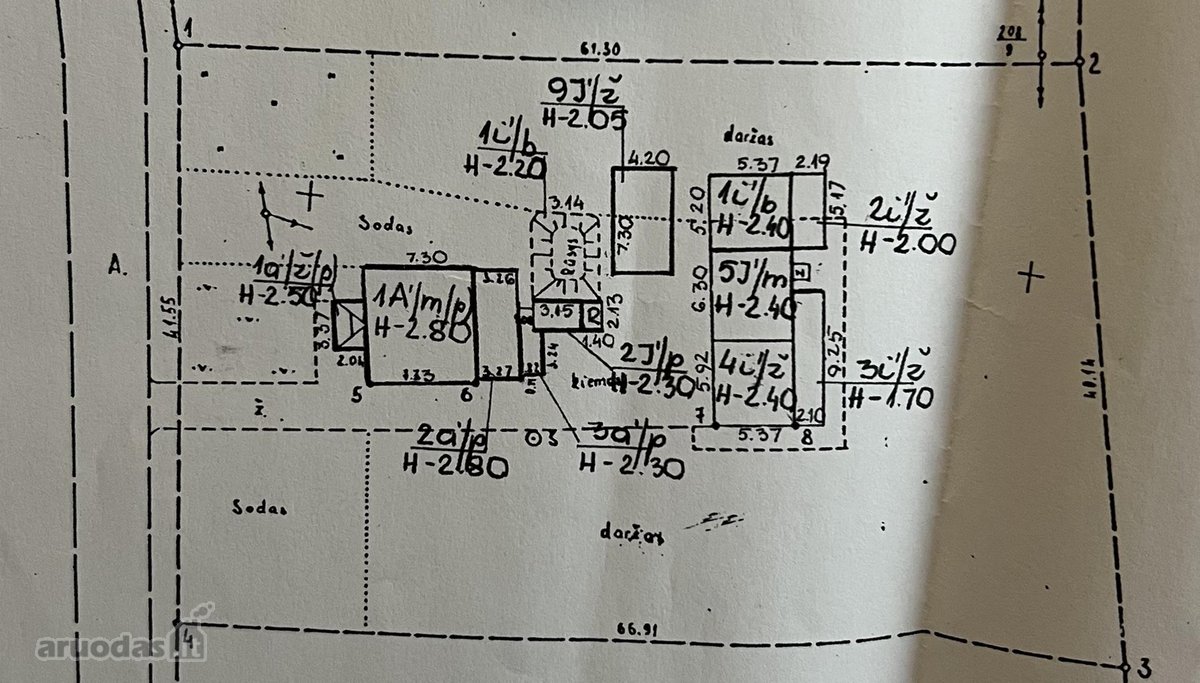 1
61.30
208
9
2
9I¹/ž
H-2.05
1i¹/b
H-2.20
daržas
4.20
5.37
2.19
3.14
5.20
1i¹/b
H-2.40
5.17
2i¹/ž
H-2.00
Sodas
7.30
7.30
Rūsys
A.
1a¹/ž/p
H-2.50
3.37
2.04
1A¹/m/p
H-2.80
3.26
3.15
2.13
1.40
6.30
5I¹/m
H-2.40
9.25
41.55
7.33
3.27
3.24
kiemas
2I¹/p
H-2.30
5.92
4i¹/ž
H-2.40
3i¹/ž
H-1.70
2.10
5
6
7
5.37
8
ž.
2a¹/p
H-2.80
3
3a¹/p
H-2.30
Sodas
daržas
4
66.91
3
aruodas.lt